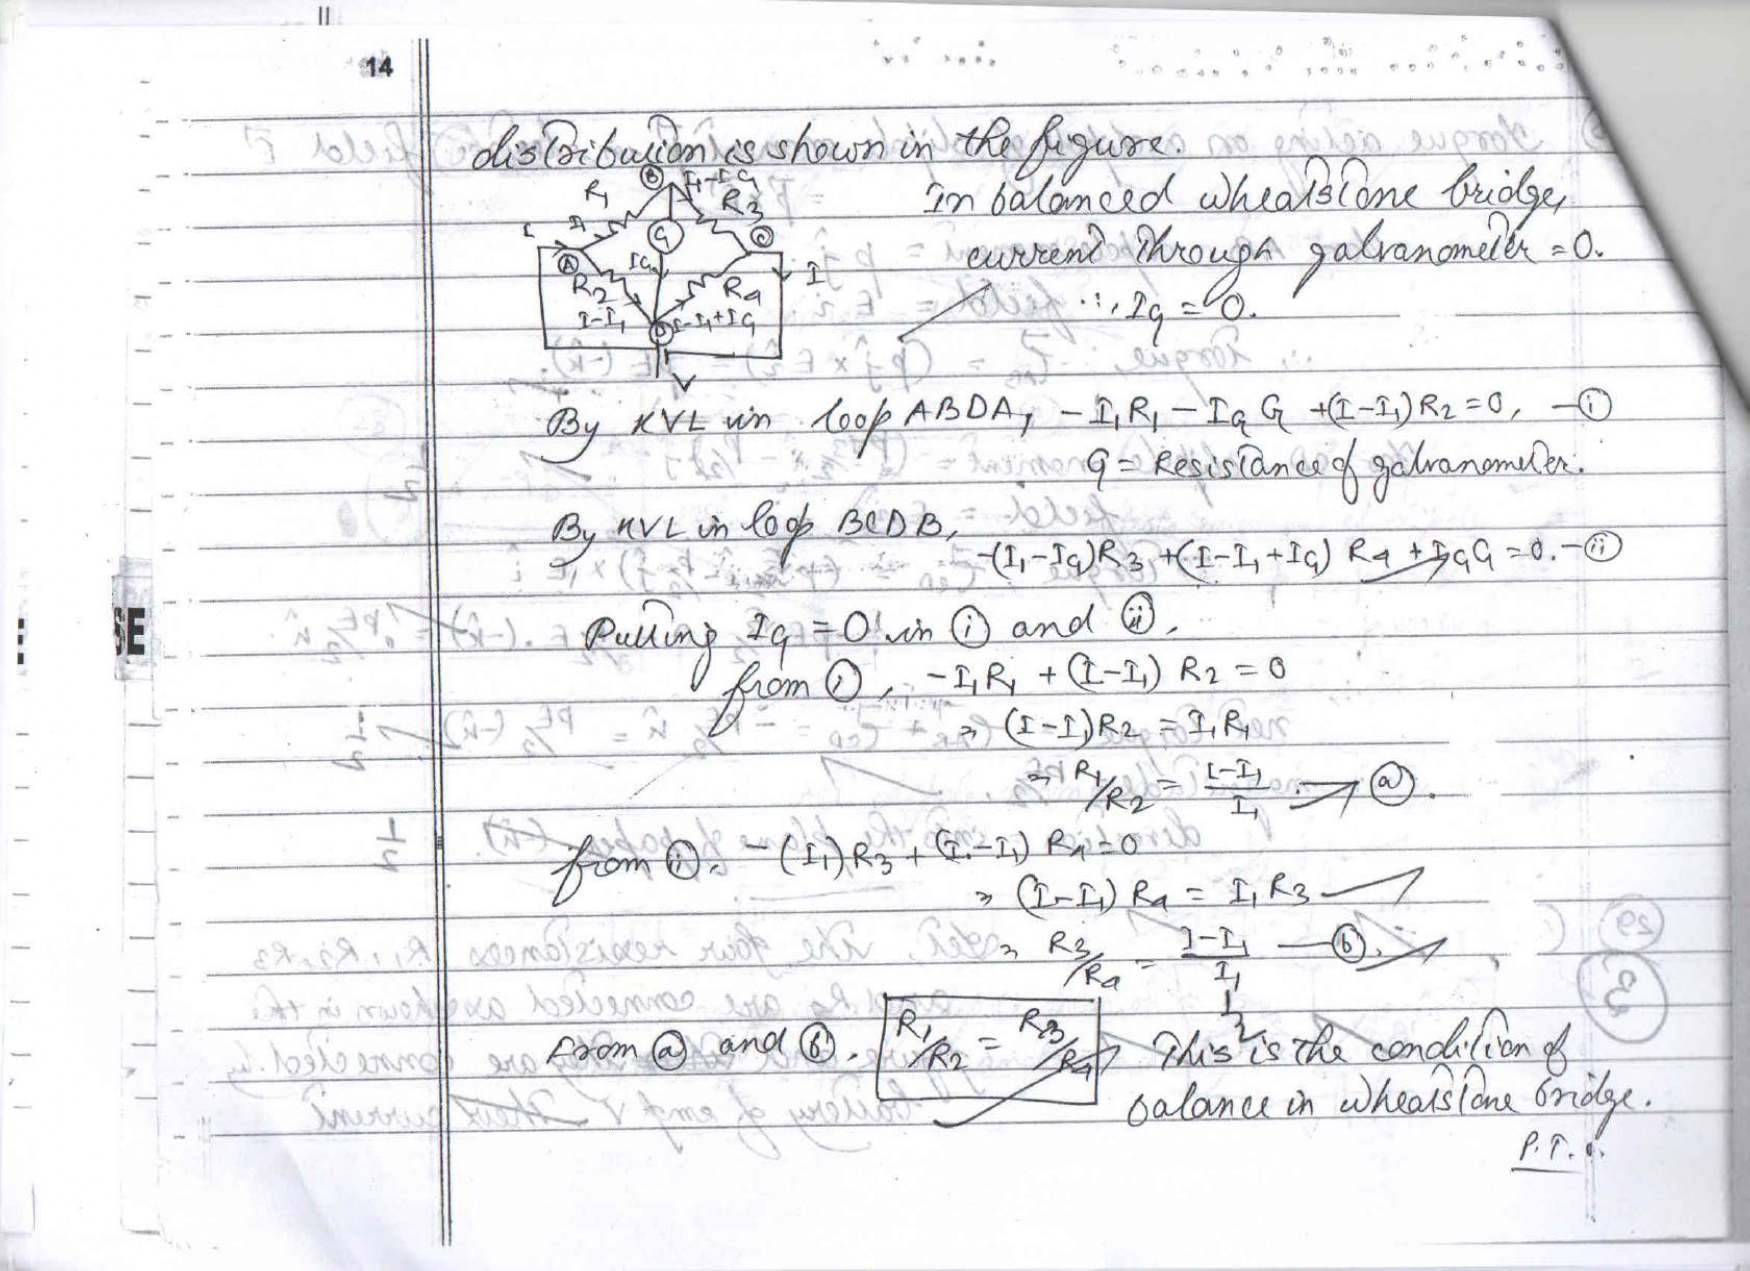 14
distribution is shown in the figure.
In balanced wheatstone bridge,
current through galvanometer = 0.
∴ IG = 0.
B I1-IG
R1 R3
I I1
G C
A IG
R2 R4 I
I-I1 D I-I1+IG
V
By KVL in loop ABDA, -I1R1 - IG G +(I-I1) R2 = 0, -(i)
G = Resistance of galvanometer.
By KVL in loop BCDB,
-(I1-IG)R3 +(I-I1+IG) R4 + IGG = 0. -(ii)
Putting IG = 0 in (i) and (ii).
from (i), -I1R1 + (I-I1) R2 = 0
⇒ (I-I1)R2 = I1R1
⇒ R1/R2 = I-I1/I1 — (a).
from (ii). -(I1)R3 + (I-I1) R4 = 0
⇒ (I-I1) R4 = I1R3
⇒ R3/R4 = I-I1/I1 — (b).
1/2
from (a) and (b). R1/R2 = R3/R4 This is the condition of
balance in wheatstone bridge.
P.T.O.
SE